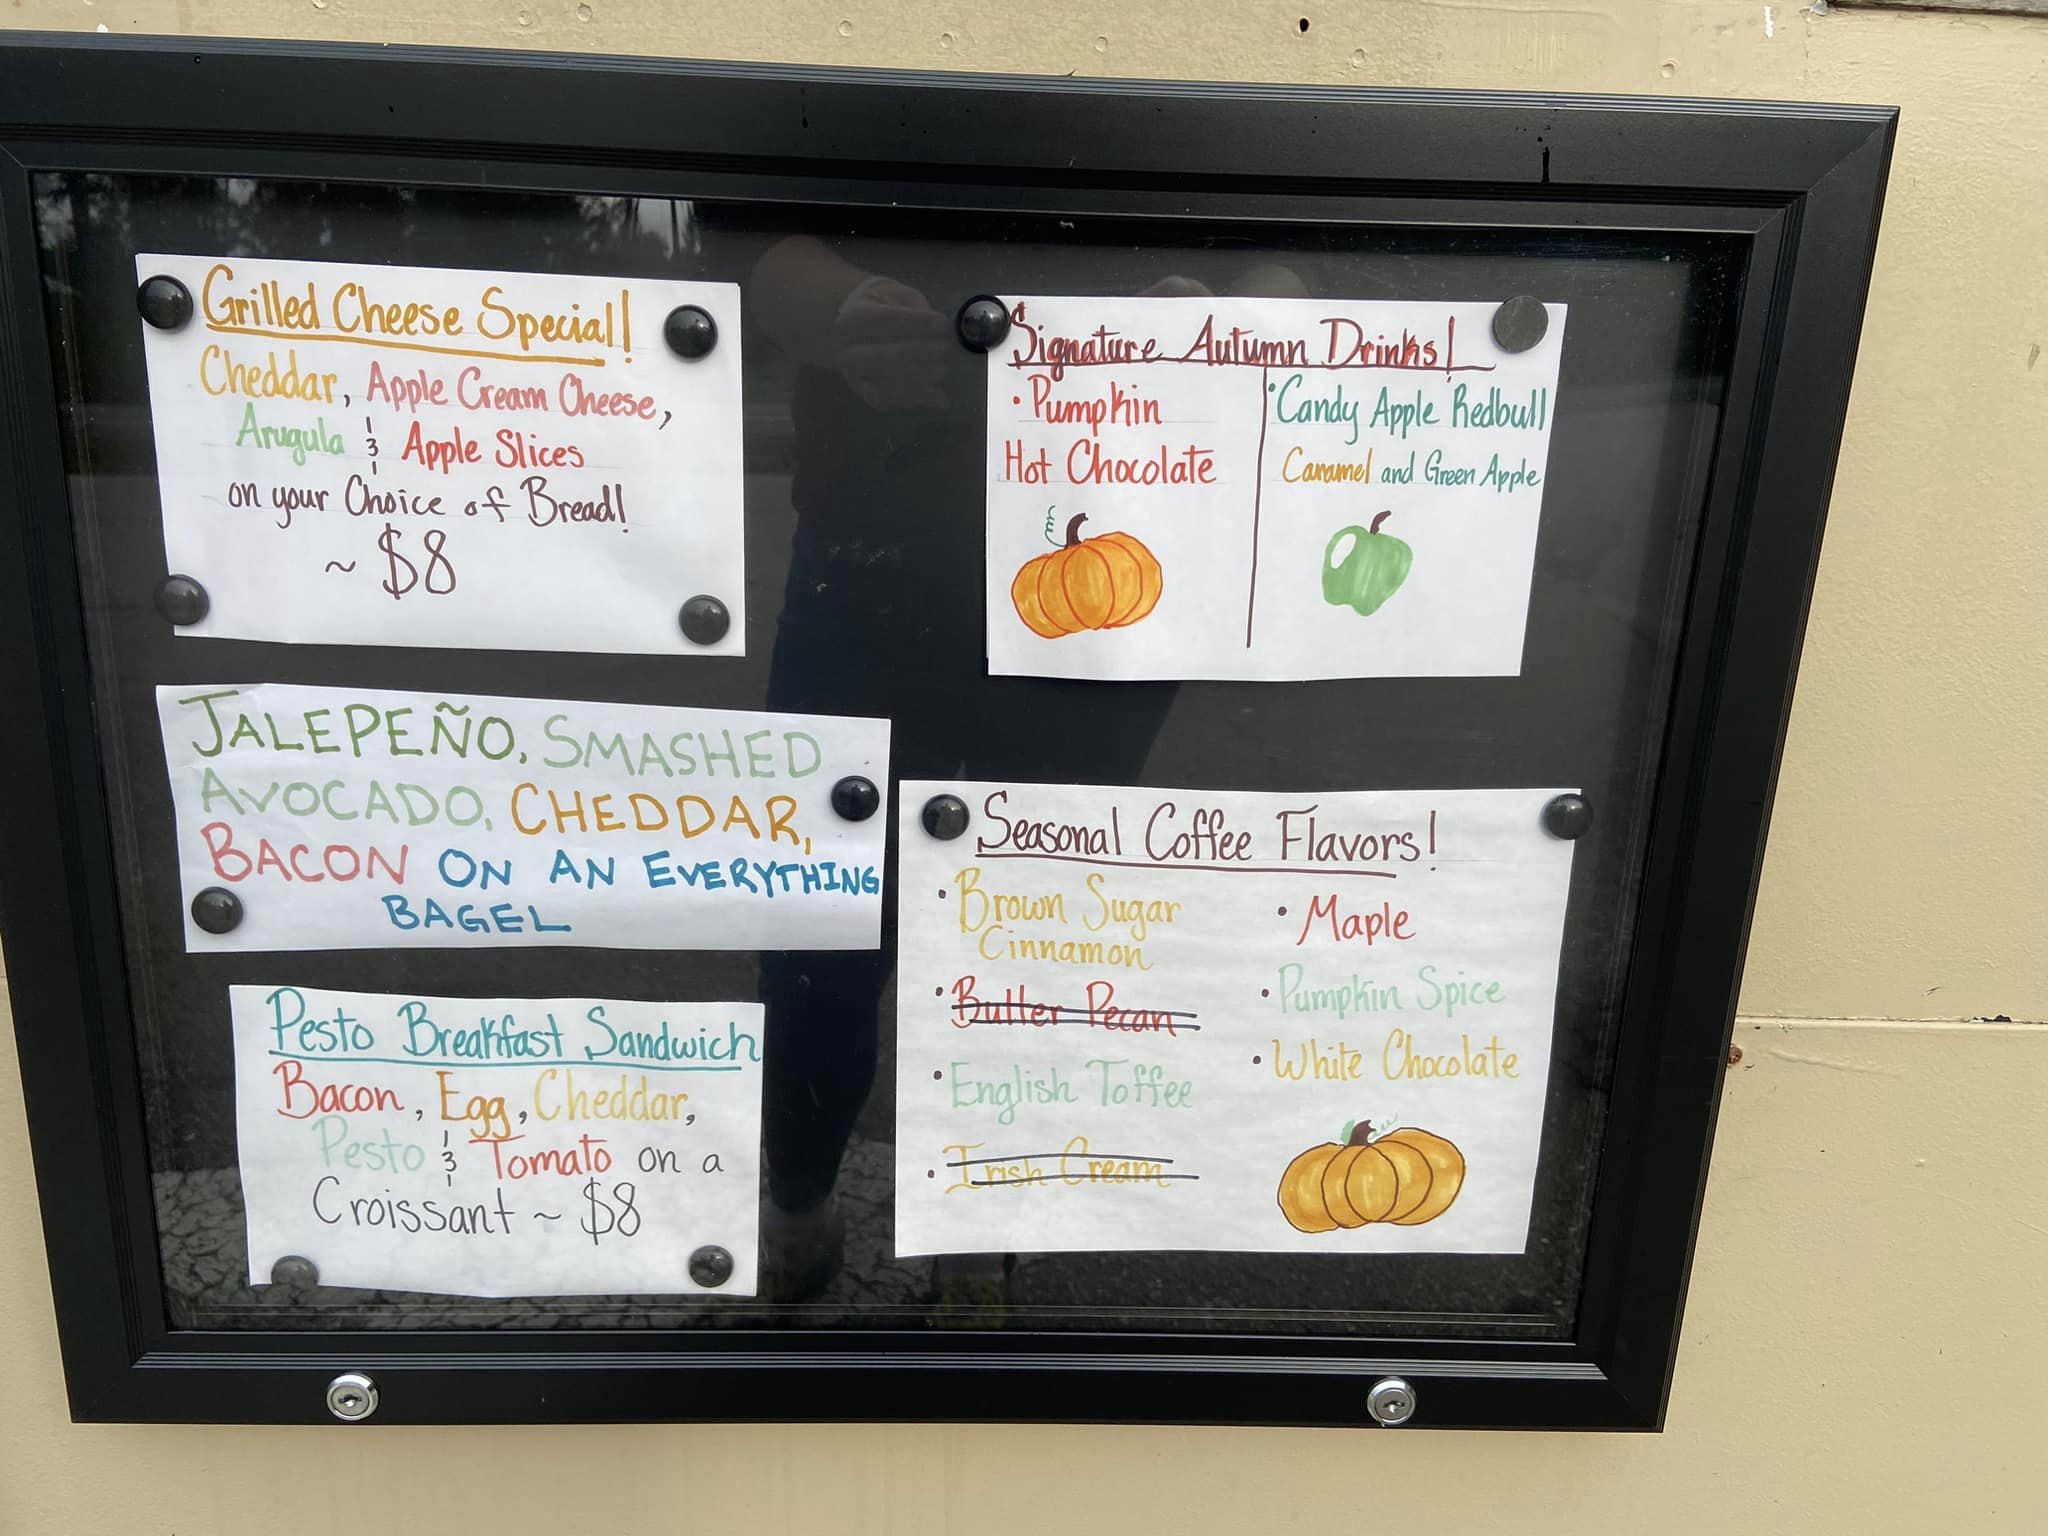 Grilled Cheese Special!
Cheddar, Apple Cream Cheese,
Arugula & Apple Slices
on your Choice of Bread!
~ $8
JALEPEÑO, SMASHED
AVOCADO, CHEDDAR,
BACON ON AN EVERYTHING
BAGEL
Pesto Breakfast Sandwich
Bacon, Egg, Cheddar,
Pesto & Tomato on a
Croissant ~ $8
Signature Autumn Drinks!
• Pumpkin
Hot Chocolate
• Candy Apple Redbull
Caramel and Green Apple
Seasonal Coffee Flavors!
• Brown Sugar
Cinnamon
• Butter Pecan
• English Toffee
• Irish Cream
• Maple
• Pumpkin Spice
• White Chocolate